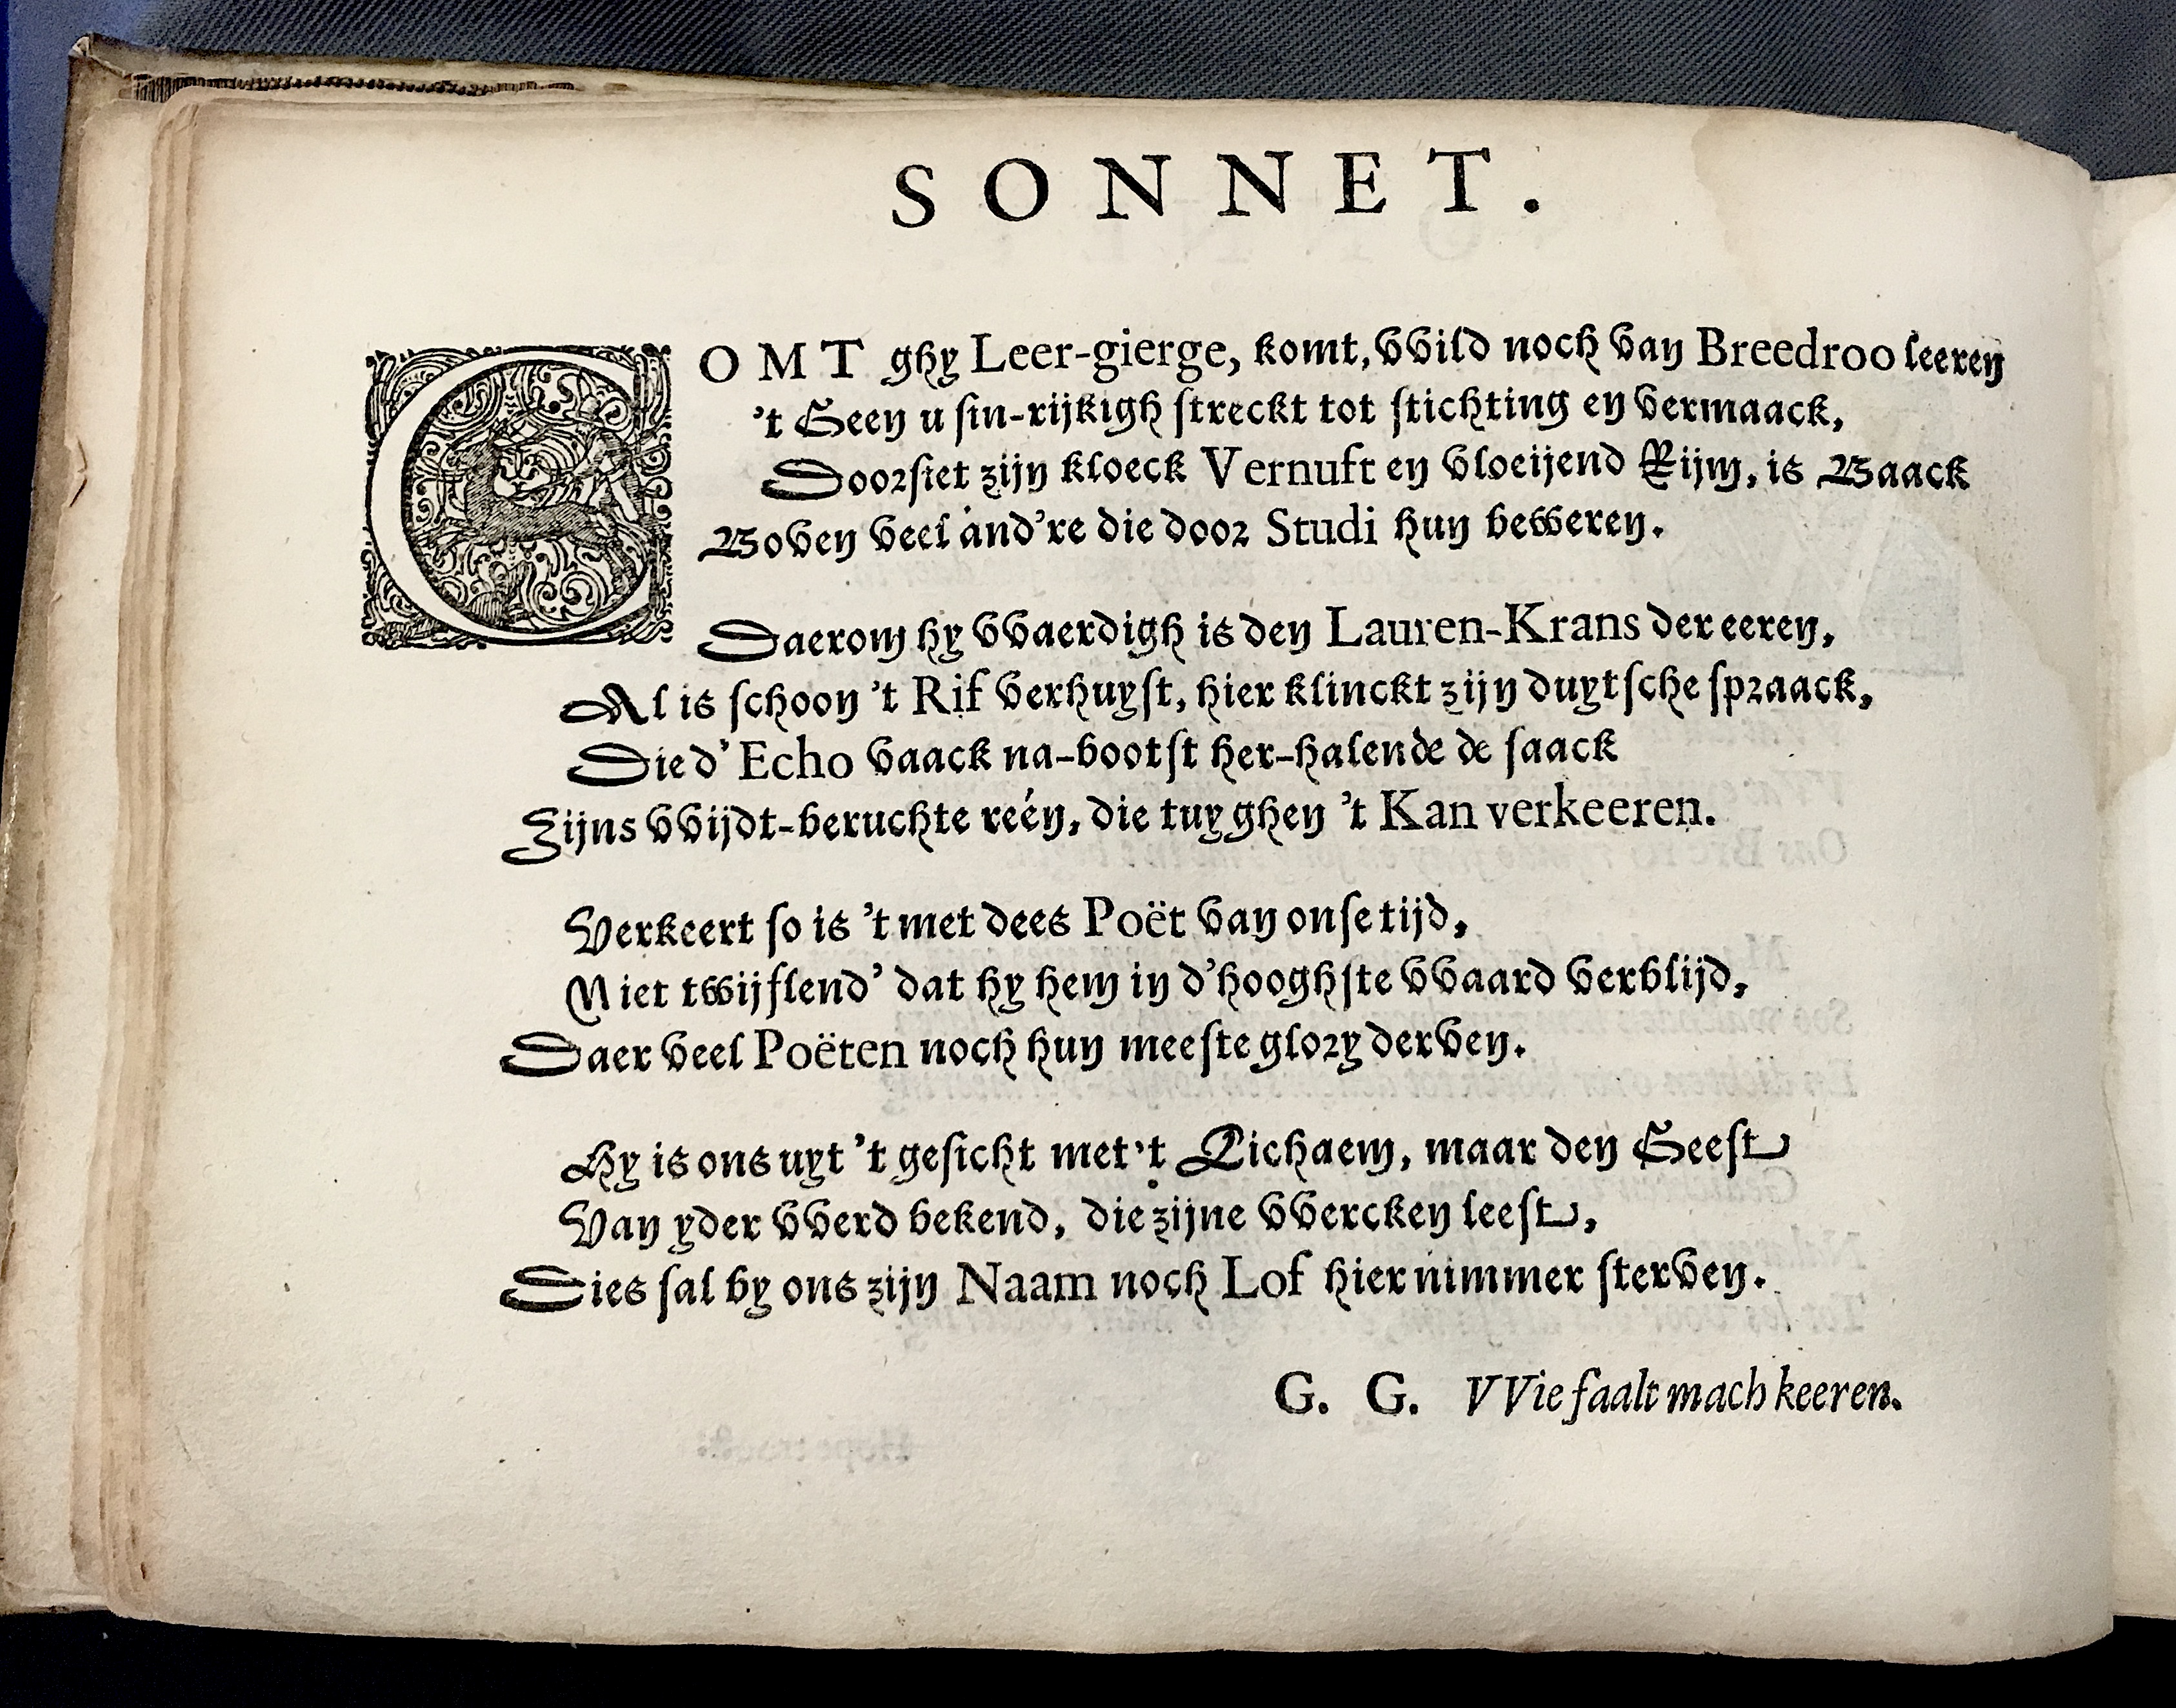 SONNET.
COMT ghy Leer-gierge, komt, VVild noch van Breedroo leeren
't Geen u sin-rijkigh streckt tot stichting en vermaack,
Doorsiet zijn kloeck Vernuft en vloeijend Rijm, is Baack
Boven veel and're die door Studi hun beweren.
Daerom hy VVaerdigh is den Lauren-Krans der eeren,
Al is schoon 't Rif verhuyst, hier klinckt zijn duytsche spraack,
Die d' Echo vaack na-bootst her-halende de saack
Zijns VVijdt-beruchte reén, die tuyghen 't Kan verkeeren.
Verkeert so is 't met dees Poët van onse tijd,
Niet twijflend' dat hy hem in d'hooghste VVaard verblijd,
Daer veel Poëten noch hun meeste glory derven.
Hy is ons uyt 't gesicht met 't Lichaem, maar den Geest
Van yder VVerd bekend, die zijne VVercken leest,
Dies sal by ons zijn Naam noch Lof hier nimmer sterven.
G. G. VVie faalt mach keeren.